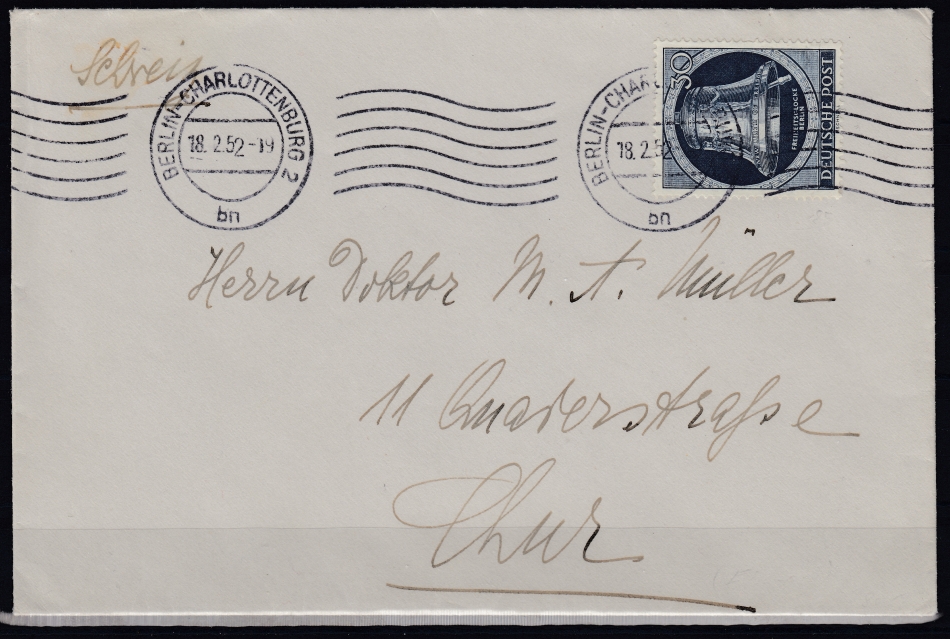 Schweiz
BERLIN-CHARLOTTENBURG 2
18.2.52-19
bn
BERLIN-CHARL
18.2.52
bn
30
FREIHEITSGLOCKE
BERLIN
DEUTSCHE POST
Herrn Doktor M. A. Müller
11 Quaderstraße
Chur